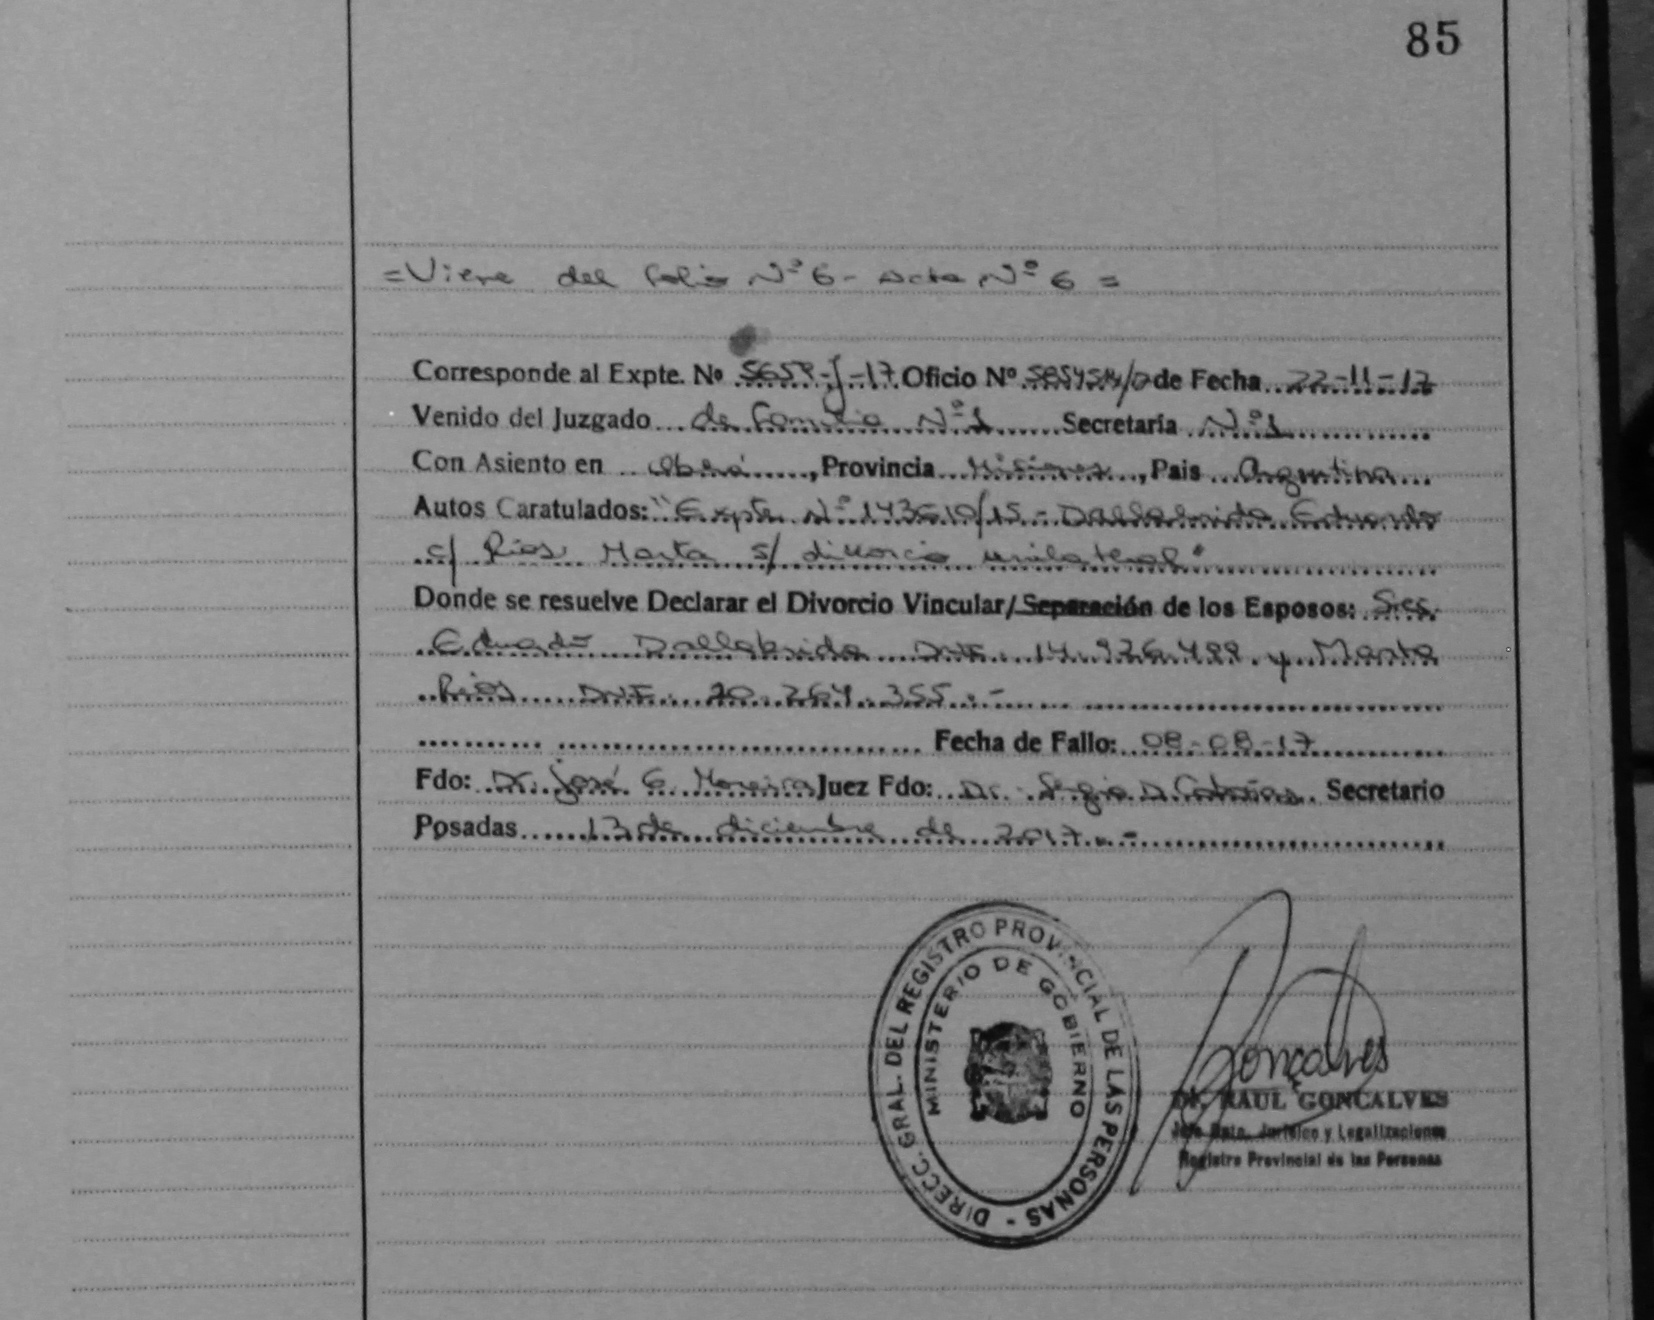 85
=Viene del folio Nº 6- Acta Nº 6 =
Corresponde al Expte. Nº 5659-J-17 Oficio Nº de Fecha 22-11-17
Venido del Juzgado de Familia Nº 1 Secretaría Nº 1
Con Asiento en Oberá, Provincia Misiones, Pais Argentina
Autos Caratulados: "Expte. Nº 143610/15 - Dallabrida Eduardo
c/ Rios Marta s/ divorcio unilateral"
Donde se resuelve Declarar el Divorcio Vincular/Separación de los Esposos: Sres.
Eduardo Dallabrida DNI. 14.926.499 y Marta
Rios DNI. 20.264.355.-
Fecha de Fallo: 08-08-17
Fdo: Dr. José G. Moreira Juez Fdo: Dr. Sergio D. Cabañas. Secretario
Posadas 13 de diciembre de 2017.-
DIRECC. GRAL. DEL REGISTRO PROVINCIAL DE LAS PERSONAS -
MINISTERIO DE GOBIERNO
Gonçalves
Dr. RAUL GONCALVES
Jefe Dpto. Jurídico y Legalizaciones
Registro Provincial de las Personas